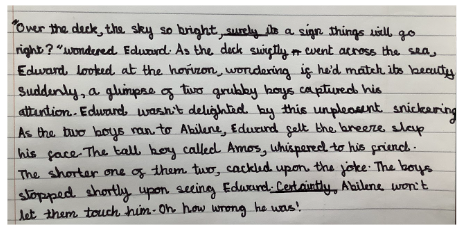 "Over the deck, the sky so bright, surely its a sign things will go
right?" wondered Edward. As the deck swiftly went across the sea,
Edward looked at the horizon, wondering if he'd match its beauty.
Suddenly, a glimpse of two grubby boys captured his
attention. Edward wasn't delighted by this unpleasent snickering
As the two boys ran to Abilene, Edward felt the breeze slap
his face. The tall boy called Amos, whispered to his friend.
The shorter one of them two, cackled upon the joke. The boys
stopped shortly upon seeing Edward. Certaintly, Abilene won't
let them touch him. Oh how wrong he was!